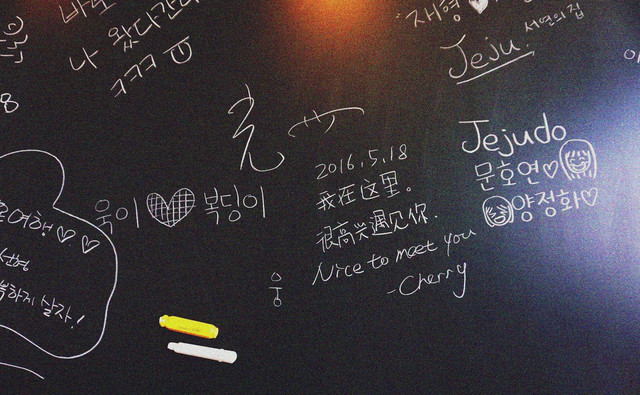 나 왔다간다
ㅋㅋㅋ
재형♥
Jeju 서연의집
8
2016.5.18
我在这里。
很高兴遇见你.
Nice to meet you
-Cherry
Jejudo
문호연♡
양정화♡
욱이♥복덩이
여행♡♡
선형
하게 살자!